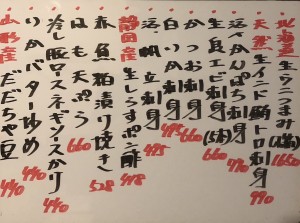 ・北海道産 生ウニつまみ(塩) 1650
・天然 生インド鮪トロ刺身 990
・活〆かんぱち刺身 770
・生良エビ刺身(5本) 660
・かつお刺身(5枚) 660
・白いか刺身 495
・活〆帆立刺身 495
・静岡産 生しらすポン酢 418
・赤魚粕漬り焼き 528
・はも天ぷら 660
・冷し豚ロースネギソースがけ 440
・いかバター炒め 440
・山形産 だだちゃ豆 440